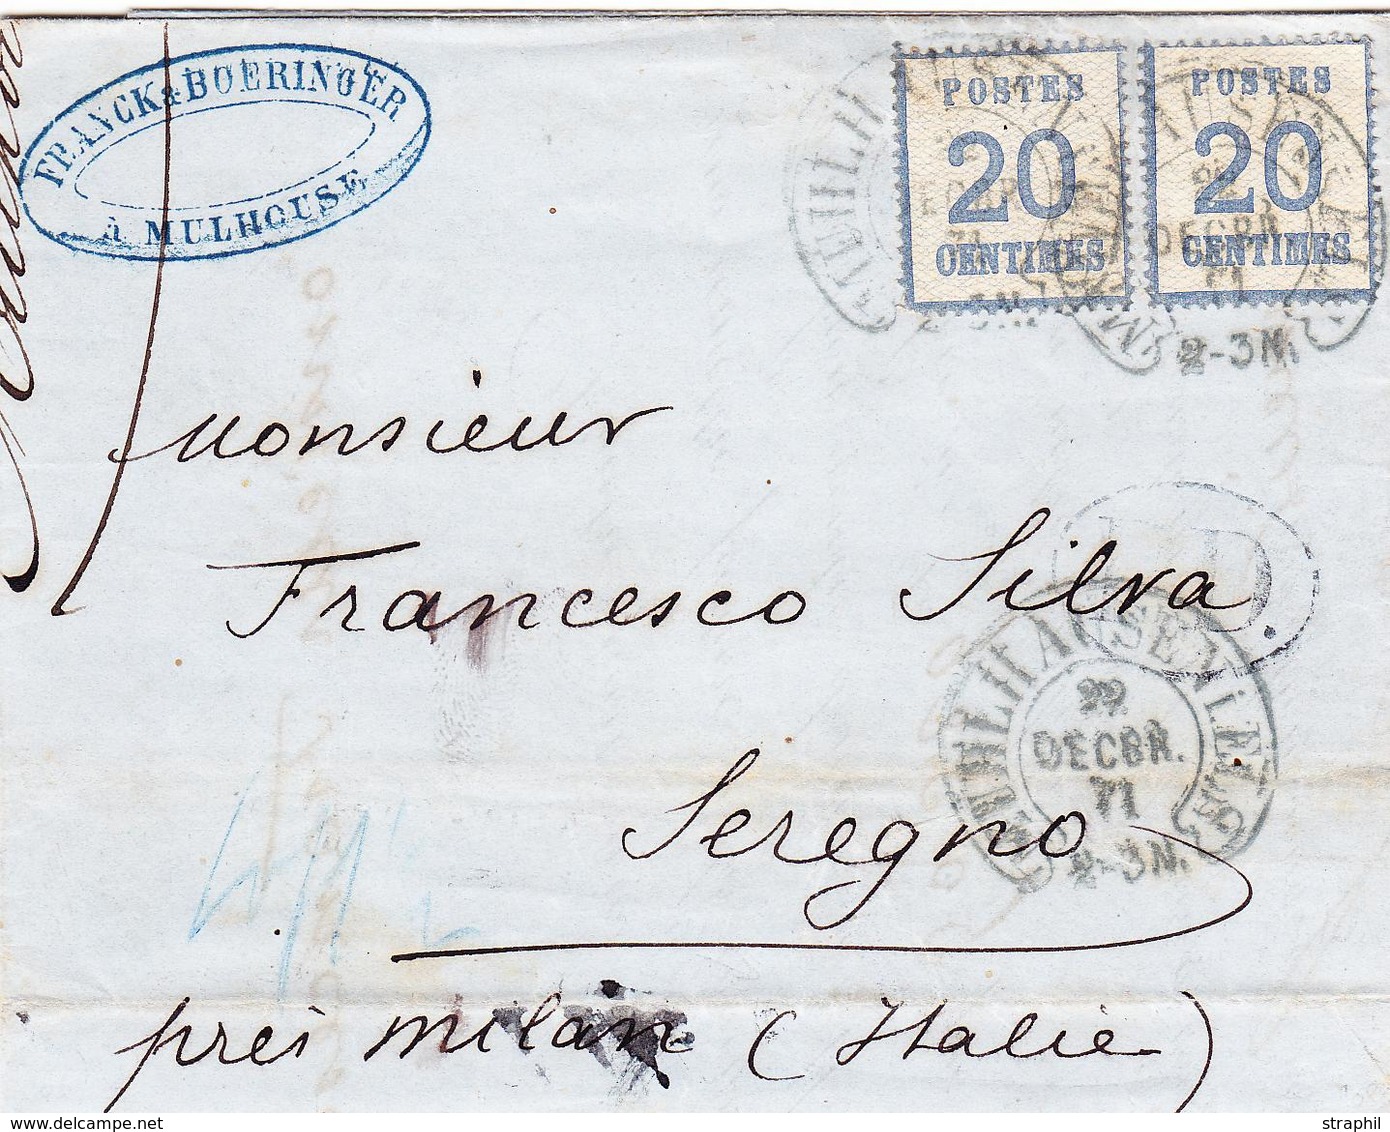 FRANCK & BOERINGER
à MULHOUSE
POSTES
20
CENTIMES
POSTES
20
CENTIMES
DECBR
71
2-3N.
Monsieur
Francesco Silva
P.D.
Seregno
MÜLHAUSEN i. ELS.
22
DECBR.
71
2-3N.
près Milan (Italie)
© www.delcampe.net
straphil